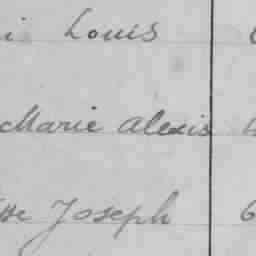 i Louis
Marie Alexis
sse Joseph 6